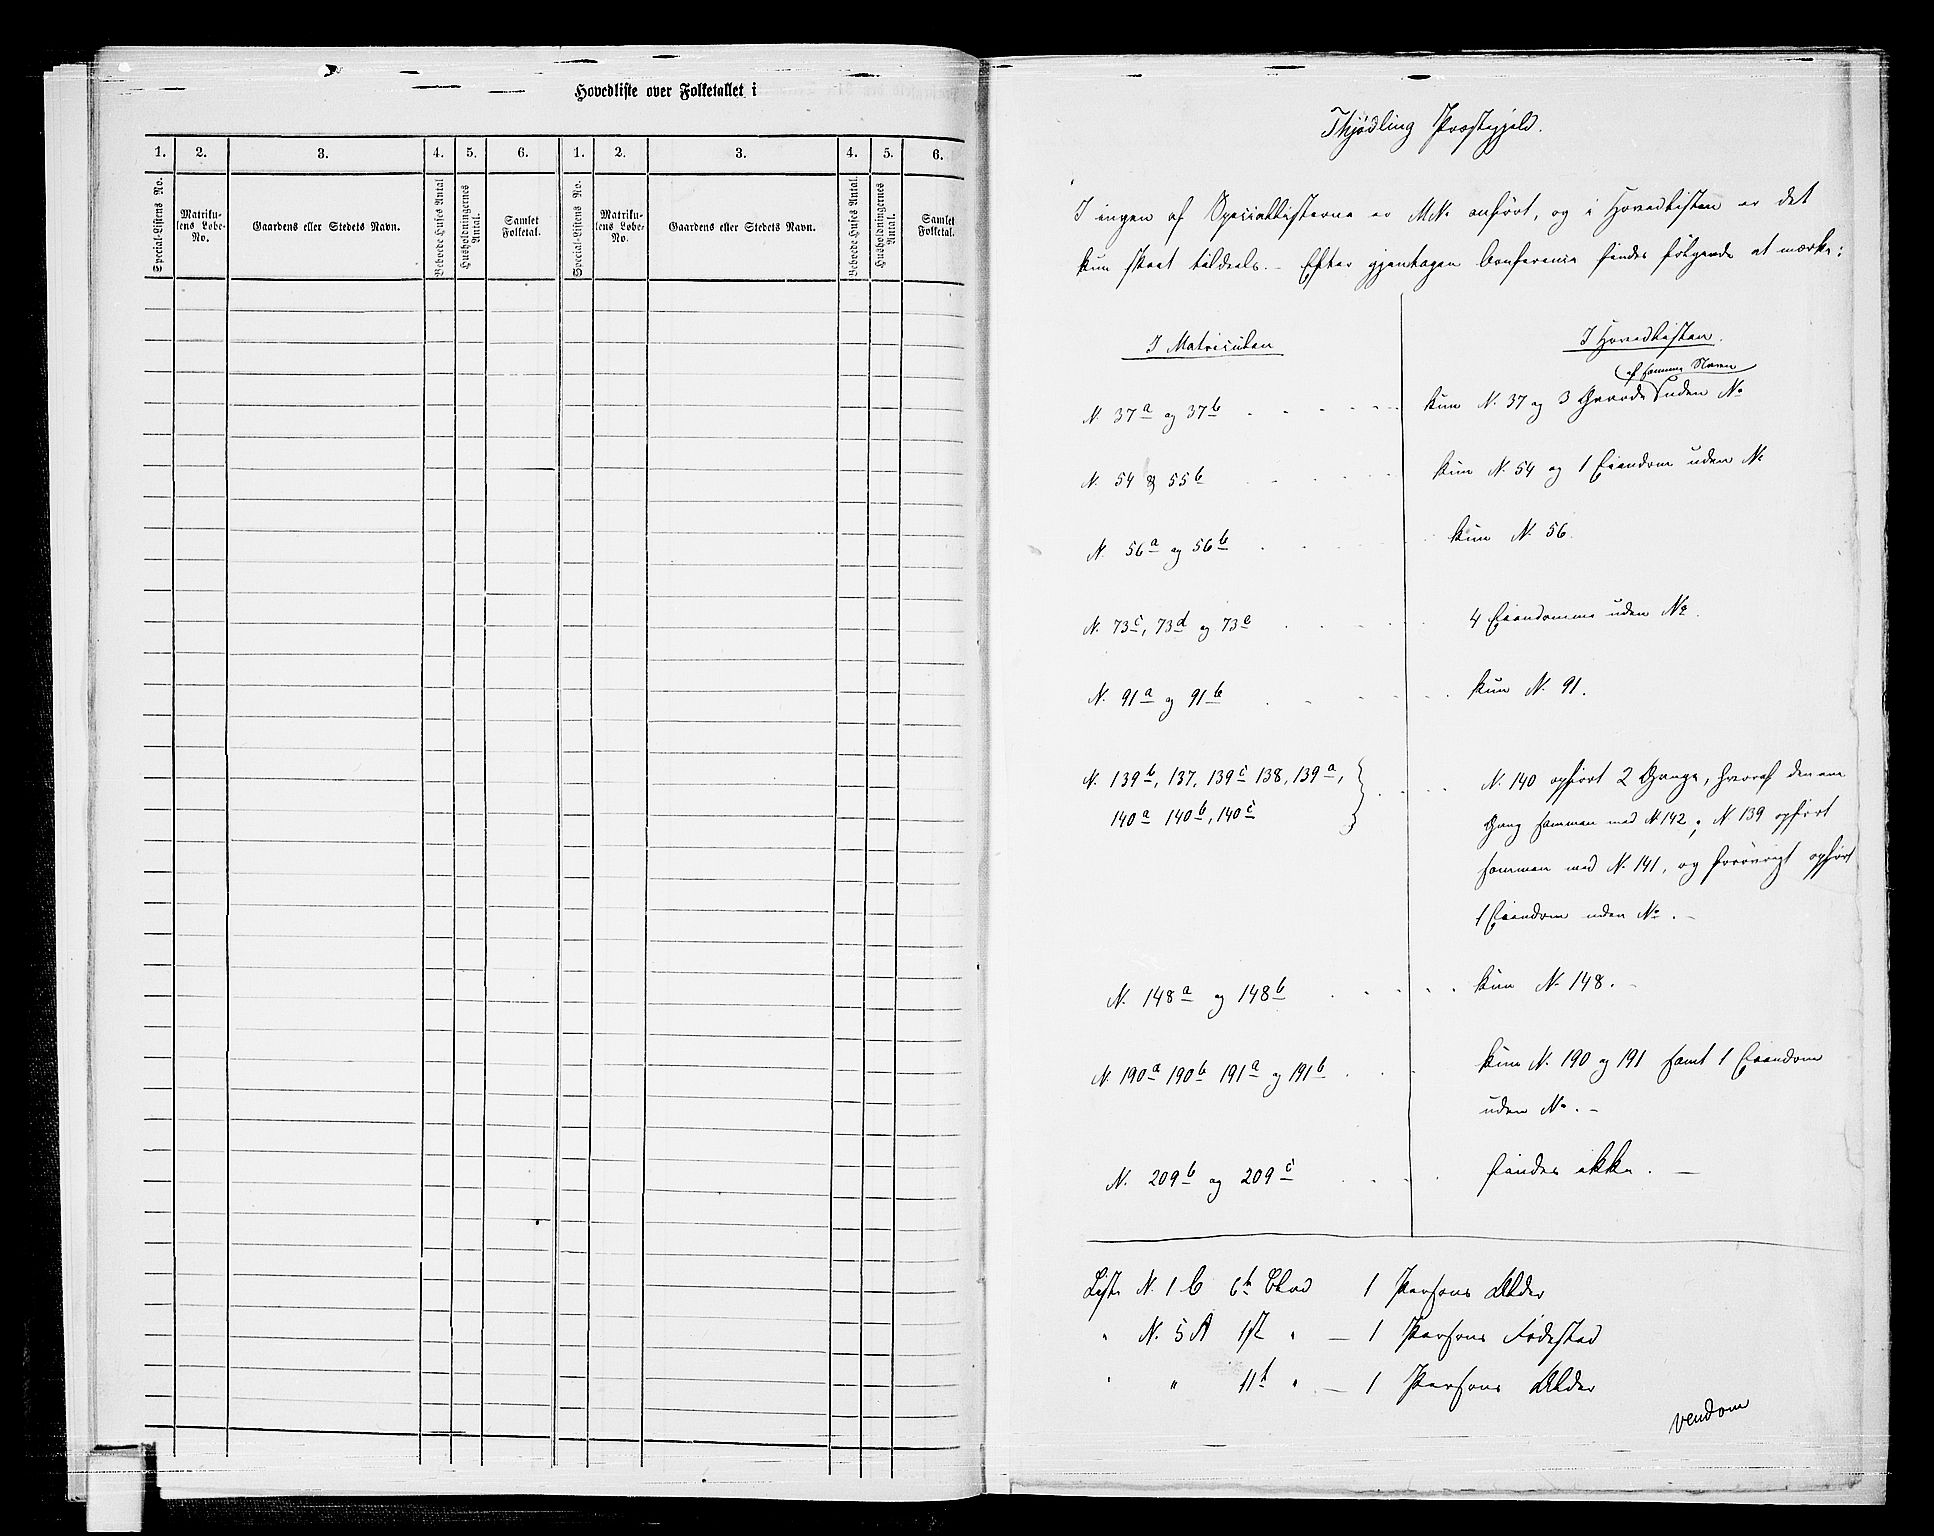 Hovedliste over Folketallet i
1. 2. 3. 4. 5. 6. 1. 2. 3. 4. 5. 6.
Special-Listens No.
Matriku-
lens Løbe-
No.
Gaardens eller Stedets Navn.
Beboede Huses Antal
Husholdningernes
Antal.
Samlet
Folketal.
Special-Listens No.
Matriku-
lens Løbe-
No.
Gaardens eller Stedets Navn.
Beboede Huses Antal.
Husholdningernes
Antal.
Samlet
Folketal.
Thjødling Præstegjeld.
I ingen af Speciallisterne er MNo anført, og i Hovedlisten er det
kun skeet tildeels. – Efter gjentagen Conference findes følgende at mærke:
I Matriculen
I Hovedlisten.
af samme Navn
N. 37a og 37b . . . . . . kun N. 37 og 3 Gaarde uden No
N. 54 & 55b . . . . kun N. 54 og 1 Eiendom uden No
N. 56a og 56b . . . . kun N. 56.
N. 73c, 73d og 73e . . . . 4 Eiendomme uden No.
N. 91a og 91b . . . . . kun N. 91.
N. 139b, 137, 139c 138, 139a, . . . . N. 140 opført 2 Gange, hvoraf den ene
140a 140b, 140c Gang sammen med N 142; N 139 opført
sammen med N. 141, og forøvrigt opført
1 Eiendom uden No. –
N. 148a og 148b . . . . . kun N. 148. –
N. 190a 190b 191a og 191b . . . kun N. 190 og 191 samt 1 Eiendom
uden No. –
N. 209b og 209c . . . . findes ikke. –
Liste N. 1 C 6te Blad 1 Persons Alder
" N. 5 A 1ste " – 1 Persons Fødested
" " 11te " – 1 Persons Alder
vendom